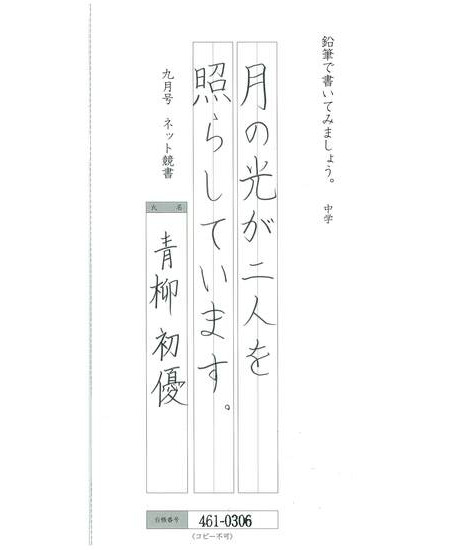 鉛筆で書いてみましょう。 中学
月の光が二人を
照らしています。
九月号 ネット競書
氏名
青柳初優
台帳番号 461-0306
(コピー不可)